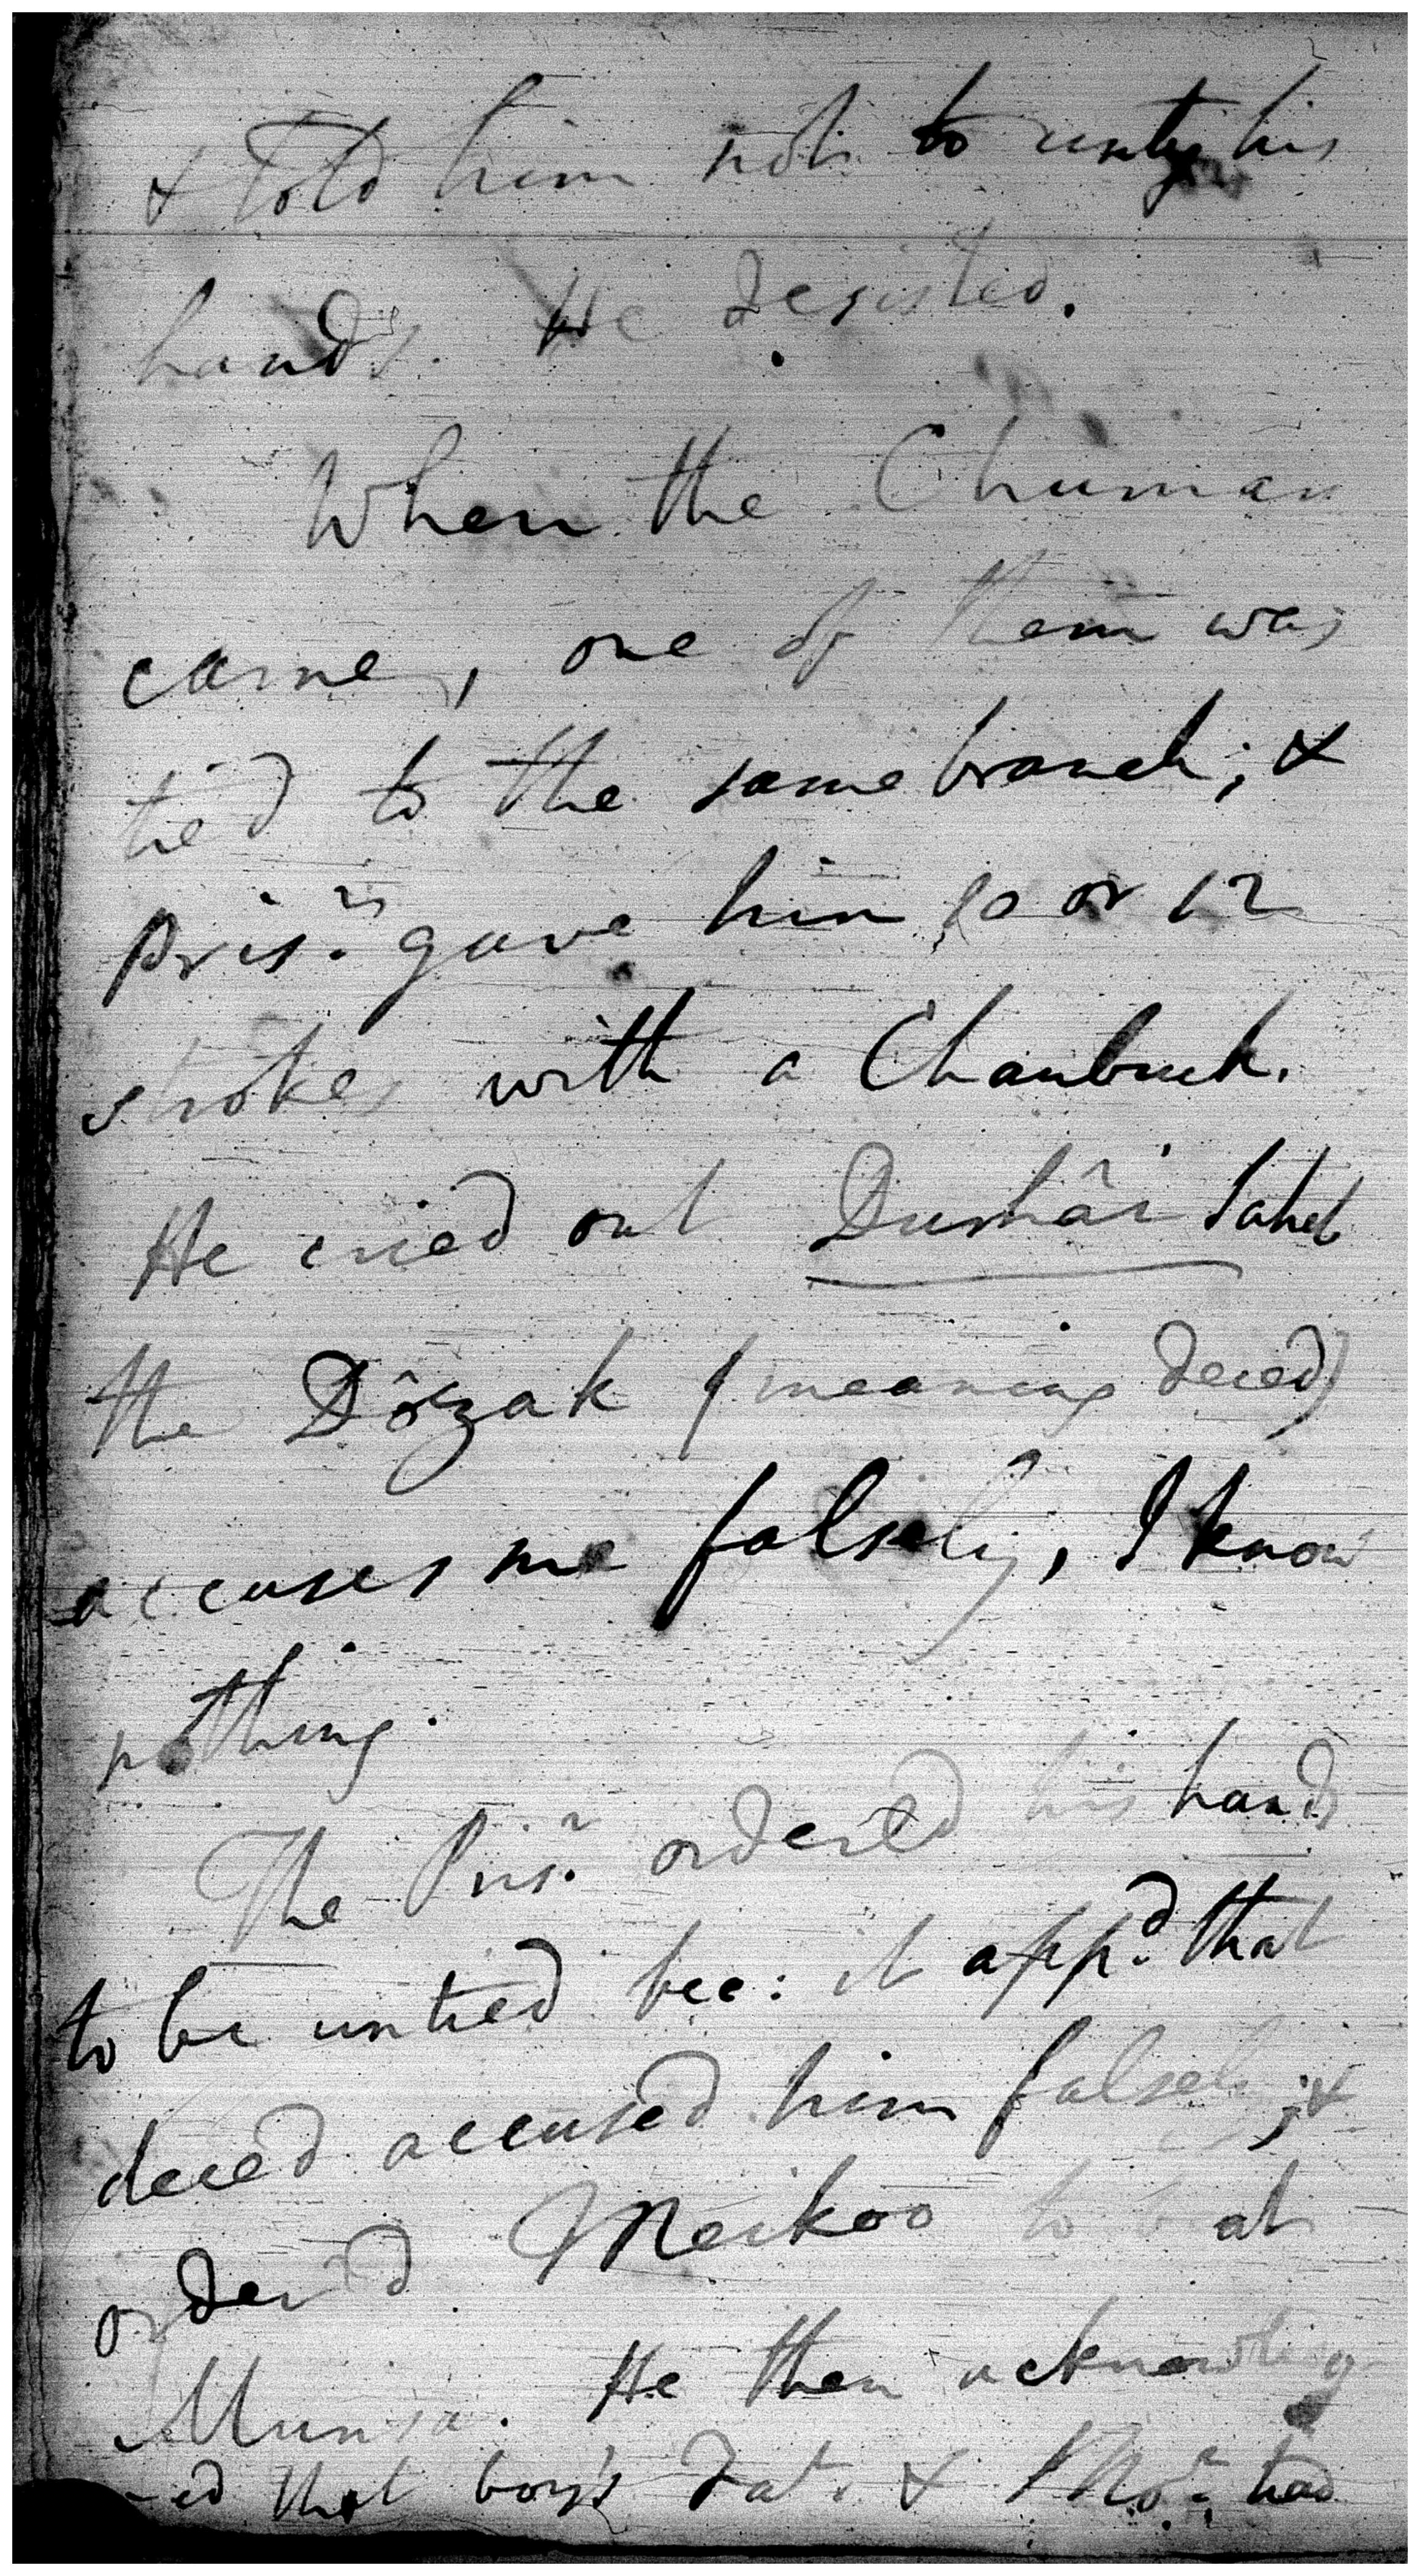 & told him not to unty his
hands. He desisted.
When the Chumar
came, one of them was
tied to the same branch; &
pris.rs gave him 10 or 12
strokes with a Chaubuck.
He cried out Duhâi Saheb
the Dôzak (meaning deced)
accuses me falsely, I know
nothing.
The Pris.r ordered his hands
to be untied bec: it app.d that
deced accused him falsely; &
ordered Meikoo to beat
Munsa. He then acknowledg
-ed that boy's Fat. & Mo.r had